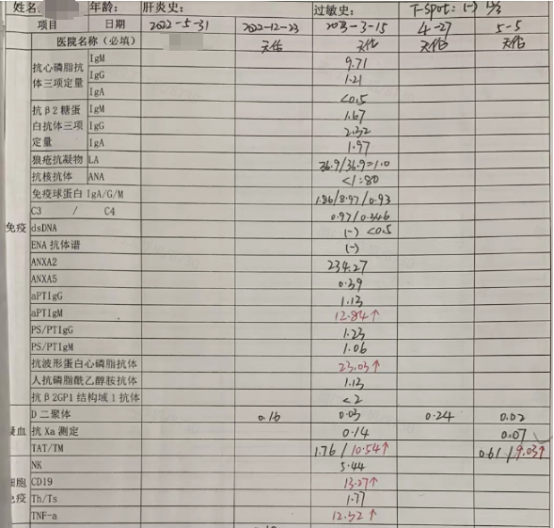 姓名: 年龄: 肝炎史: 过敏史: T-spot: (-)
项目 日期 2022-5-31 2022-12-23 2023-3-15 4-27 5-5
医院名称（必填） 无偿 无偿
抗心磷脂抗体三项定量 IgM 9.71
IgG 1.21
IgA <0.5
抗β2糖蛋白抗体三项定量 IgM 1.67
IgG 2.32
IgA 1.97
狼疮抗凝物 LA 36.9/36.9=1.0
抗核抗体 ANA <1:80
免疫球蛋白 IgA/G/M 1.86/8.97/0.93
C3 / C4 0.97/0.246
免疫 dsDNA (-) <0.5
ENA 抗体谱 (-)
ANXA2 234.27
ANXA5 0.39
aPTIgG 1.13
aPTIgM 12.84↑
PS/PTIgG 1.23
PS/PTIgM 1.06
抗波形蛋白心磷脂抗体 23.03↑
人抗磷酰乙醇胺抗体 1.13
抗β2GP1结构域1抗体 <2
D二聚体 0.16 0.03 0.24 0.02
凝血 抗Xa测定 0.14 0.07
TAT/TM 1.76/10.54↑ 0.61/9.03↑
NK 5.44
细胞免疫 CD19 13.27↑
Th/Ts 1.77
TNF-a 12.52↑